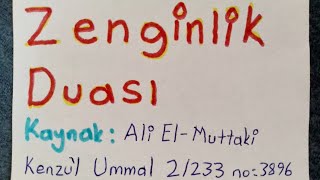 Zenginlik
Duası
Kaynak: Ali El-Muttaki
Kenzü'l Ummal 2/233 no:3896